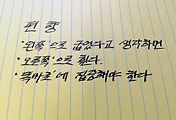 편향
· '왼쪽'으로 굽었다고 생각하면
· '오른쪽'으로 휜다.
· '똑바로'에 집중해야 한다